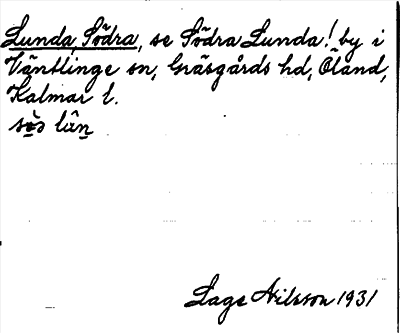 Lunda, Södra, se Södra Lunda! by i
Ventlinge sn, Gräsgårds hd, Öland,
Kalmar l.
Lage Nilsson 1931